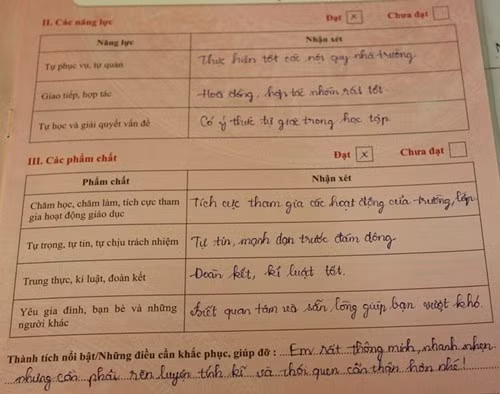 II. Các năng lực Đạt [x] Chưa đạt [ ]
Năng lực Nhận xét
Tự phục vụ, tự quản Thực hiện tốt các nội quy nhà trường.
Giao tiếp, hợp tác Hoà đồng, hợp tác nhóm rất tốt
Tự học và giải quyết vấn đề Có ý thức tự giác trong học tập
III. Các phẩm chất Đạt [x] Chưa đạt [ ]
Phẩm chất Nhận xét
Chăm học, chăm làm, tích cực tham Tích cực tham gia các hoạt động của trường, lớp
gia hoạt động giáo dục
Tự trọng, tự tin, tự chịu trách nhiệm Tự tin, mạnh dạn trước đám đông
Trung thực, kỉ luật, đoàn kết Đoàn kết, kỉ luật tốt.
Yêu gia đình, bạn bè và những Biết quan tâm và sẵn lòng giúp bạn vượt khó.
người khác
Thành tích nổi bật/Những điều cần khắc phục, giúp đỡ : Em rất thông minh, nhanh nhẹn
nhưng cần phải rèn luyện tính kĩ và thói quen cẩn thận hơn nhé!